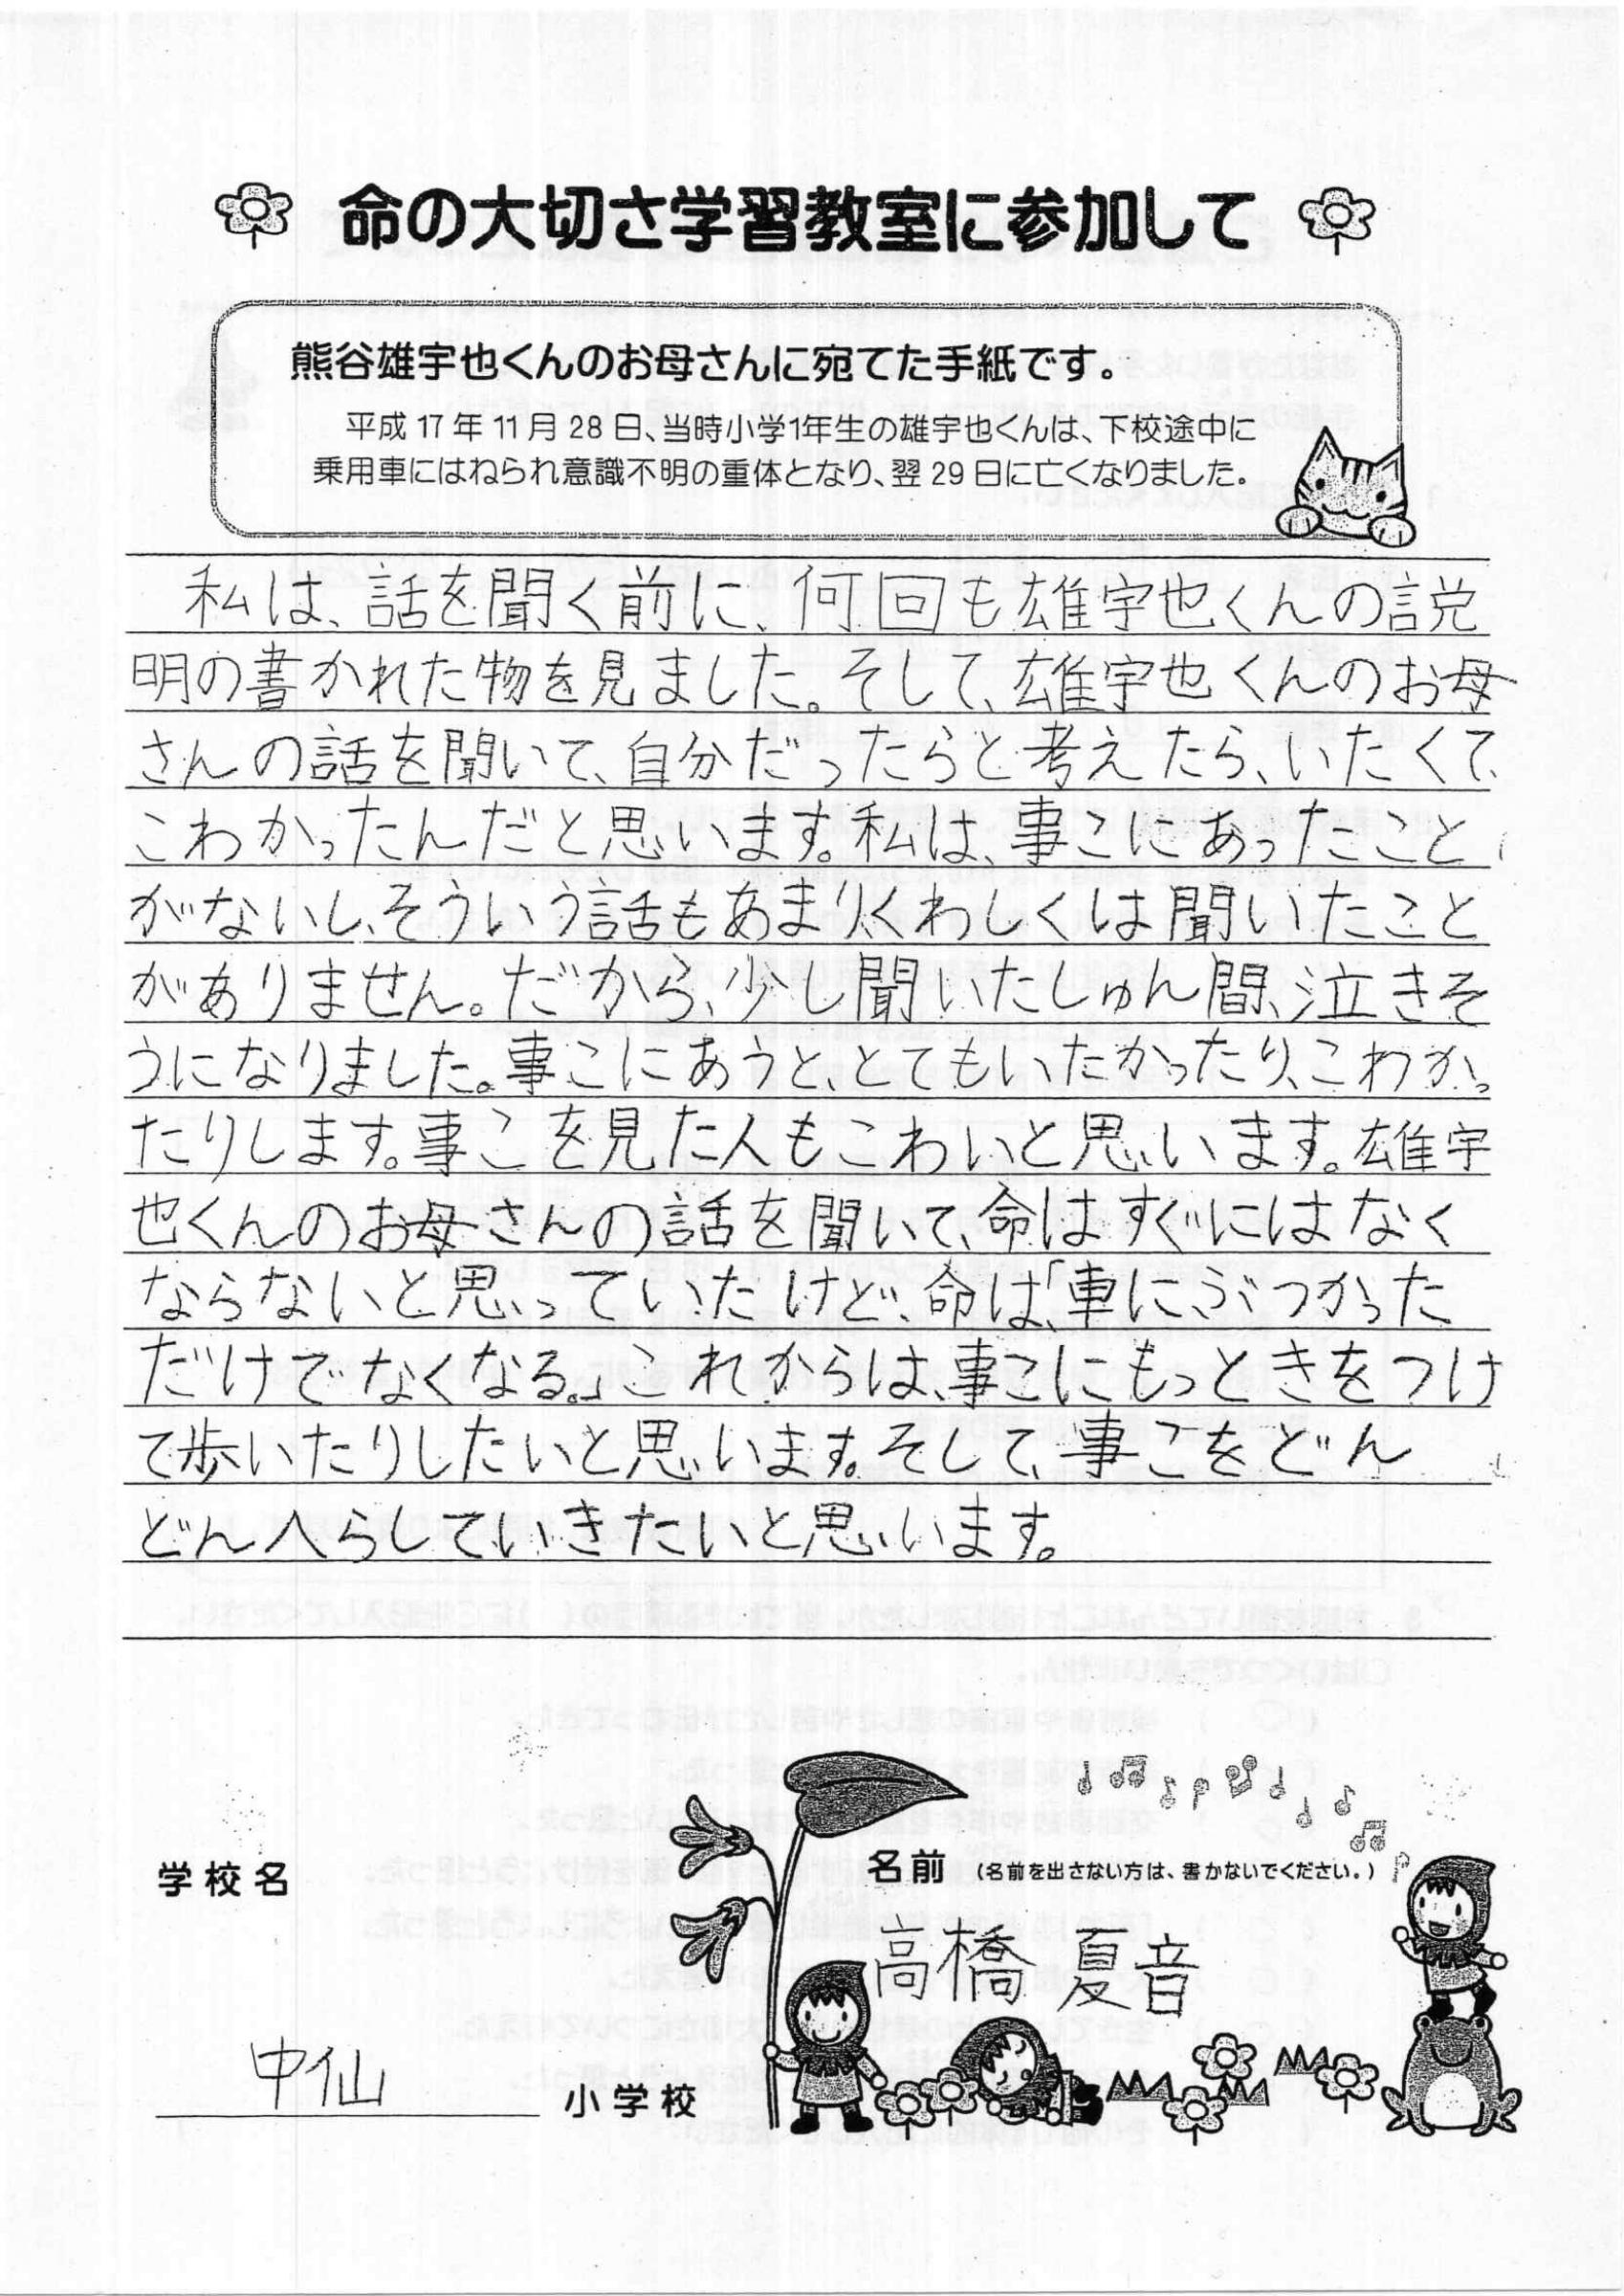 命の大切さ学習教室に参加して
熊谷雄宇也くんのお母さんに宛てた手紙です。
平成17年11月28日、当時小学1年生の雄宇也くんは、下校途中に
乗用車にはねられ意識不明の重体となり、翌29日に亡くなりました。
私は、話を聞く前に、何回も雄宇也くんの説
明の書かれた物を見ました。そして、雄宇也くんのお母
さんの話を聞いて、自分だったらと考えたら、いたくて、
こわかったんだと思います。私は、事こにあったこと
がないし、そういう話もあまりくわしくは聞いたこと
がありません。だから、少し聞いたしゅん間、泣きそ
うになりました。事こにあうと、とてもいたかったり、こわかっ
たりします。事こを見た人もこわいと思います。雄宇
也くんのお母さんの話を聞いて、命はすぐにはなく
ならないと思っていたけど、命は、「車に、ぶつかった
だけでなくなる。」これからは、事こにもっときをつけ
て歩いたりしたいと思います。そして、事こをどん
どんへらしていきたいと思います。
学校名
名前 (名前を出さない方は、書かないでください。)
高橋 夏音
中仙 小学校